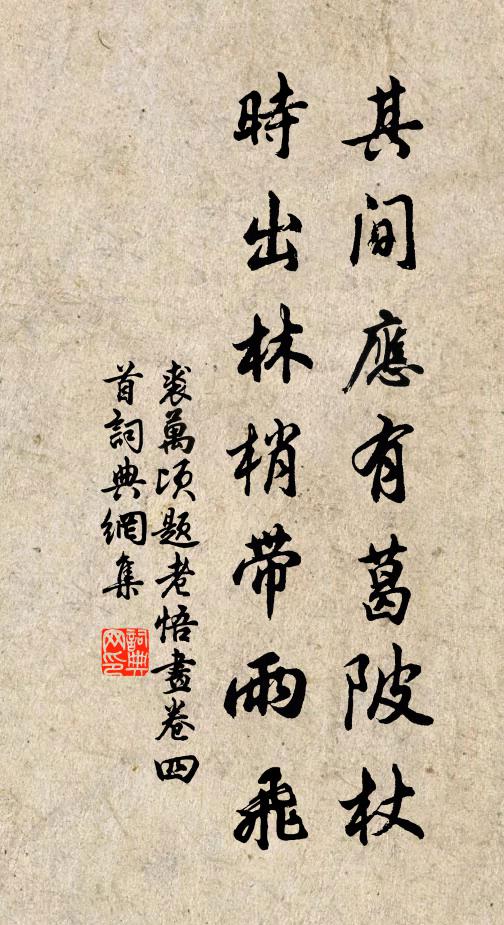 其間應有葛陂杖
時出林梢帶雨飛
裘萬頃題老悟畫卷四
首詞典網集
詞典
网印